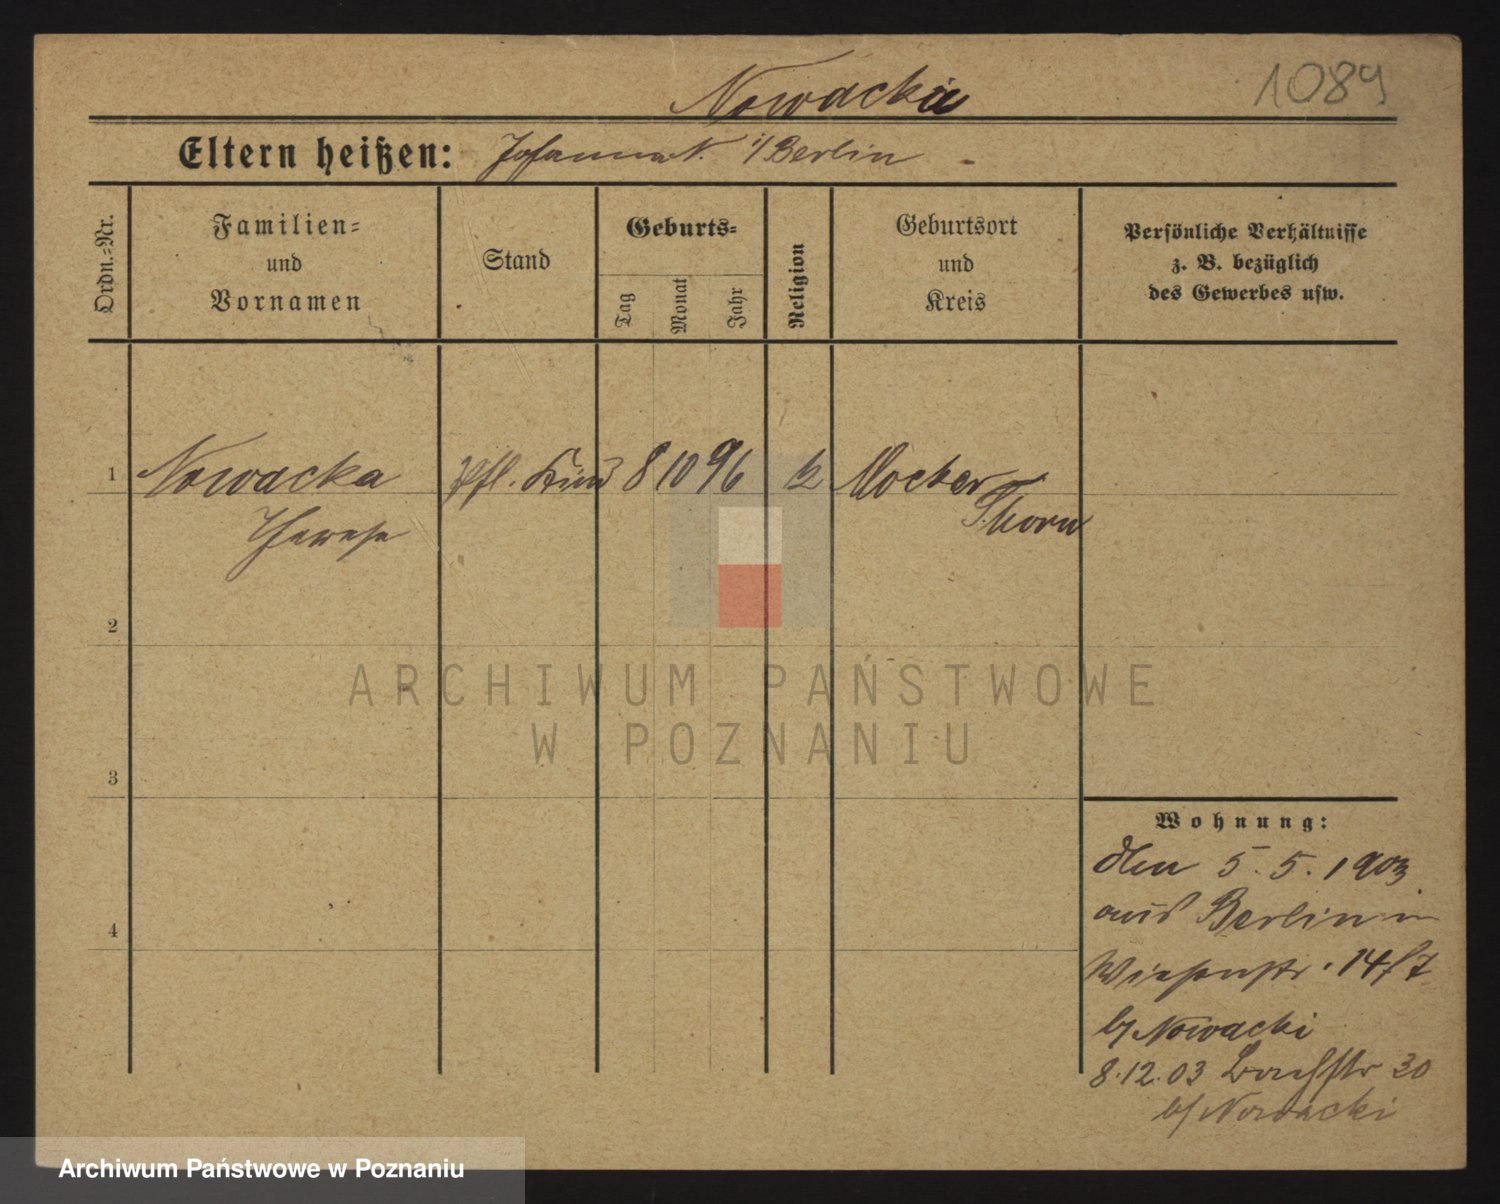 Nowacka
1089
Eltern heißen: Johanna N. i/Berlin
Ordn.=Nr.
Familien=
und
Vornamen
Stand
Geburts=
Tag
Monat
Jahr
Religion
Geburtsort
und
Kreis
Persönliche Verhältnisse
z. B. bezüglich
des Gewerbes usw.
1 Nowacka Pfl. Kind 8 10 96 k Mocker
Therese Thorn
2
3
4
Wohnung:
den 5.5.1903
aus Berlin in
Wiesenstr. 14/7
b/ Nowacki
8.12.03 Bachstr 30
b/ Nowacki
ARCHIWUM PAŃSTWOWE
W POZNANIU
Archiwum Państwowe w Poznaniu